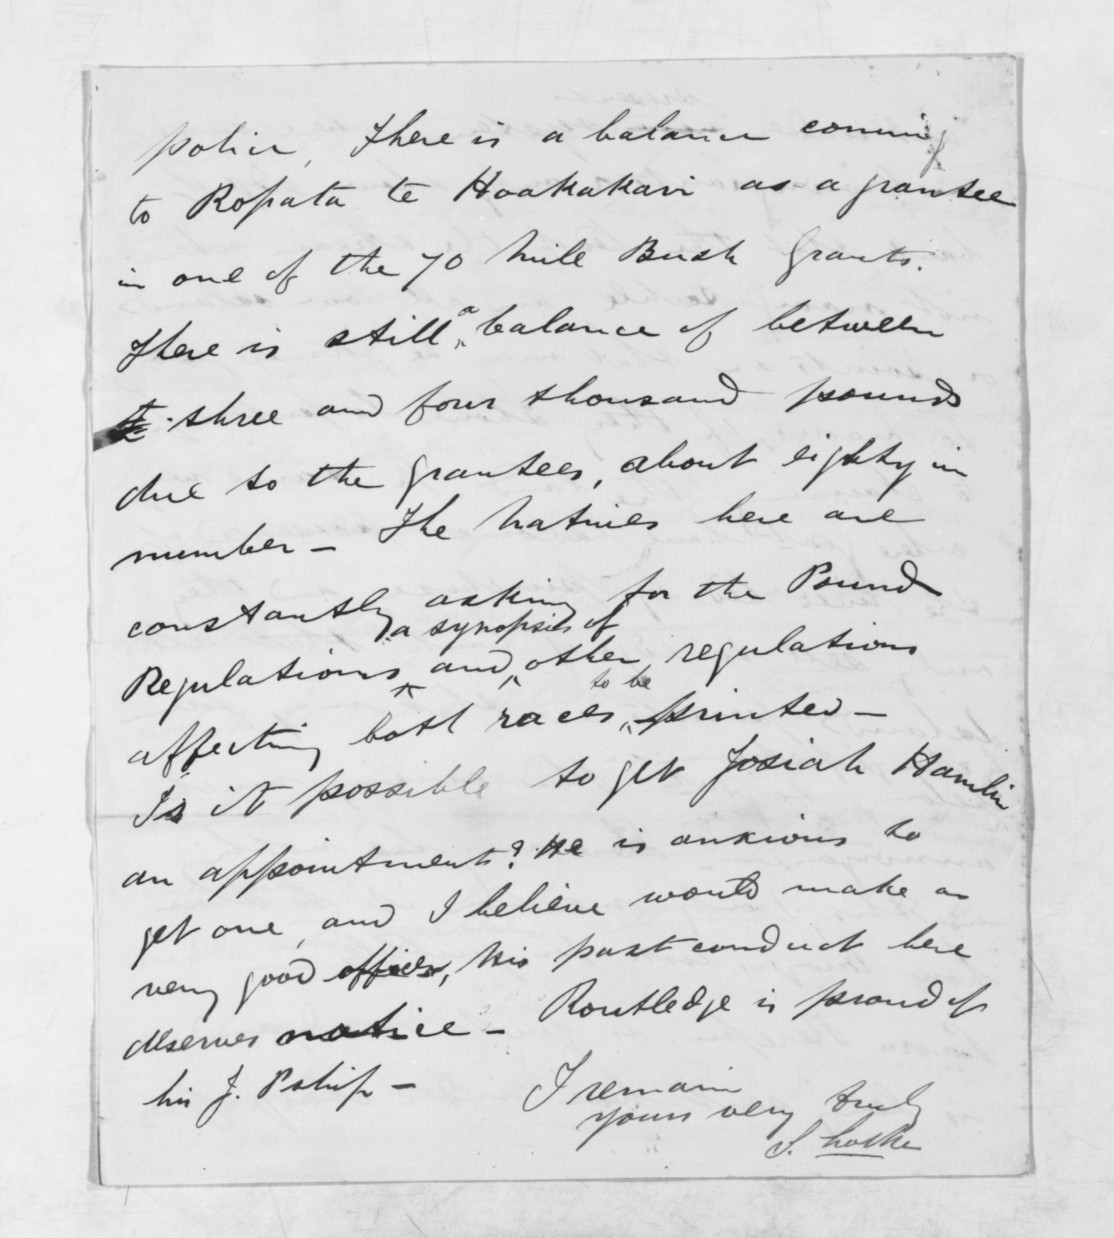 police, There is a balance coming
to Ropata te Hoakakari as a grantee
in one of the 70 Mile Bush Grants.
There is still a balance of between
three and four thousand pounds
due to the grantees, about eighty in
number – The Natives here are
constantly asking for the Pound
Regulations and a synopsis of other regulations
affecting both races, to be printed –
Is it possible to get Josiah Hamlin
an appointment? He is anxious to
get one, and I believe would make a
very good officer, his past conduct here
deserves notice – Routledge is proud of
his J. Pship –
I remain
yours very truly
S. Locke